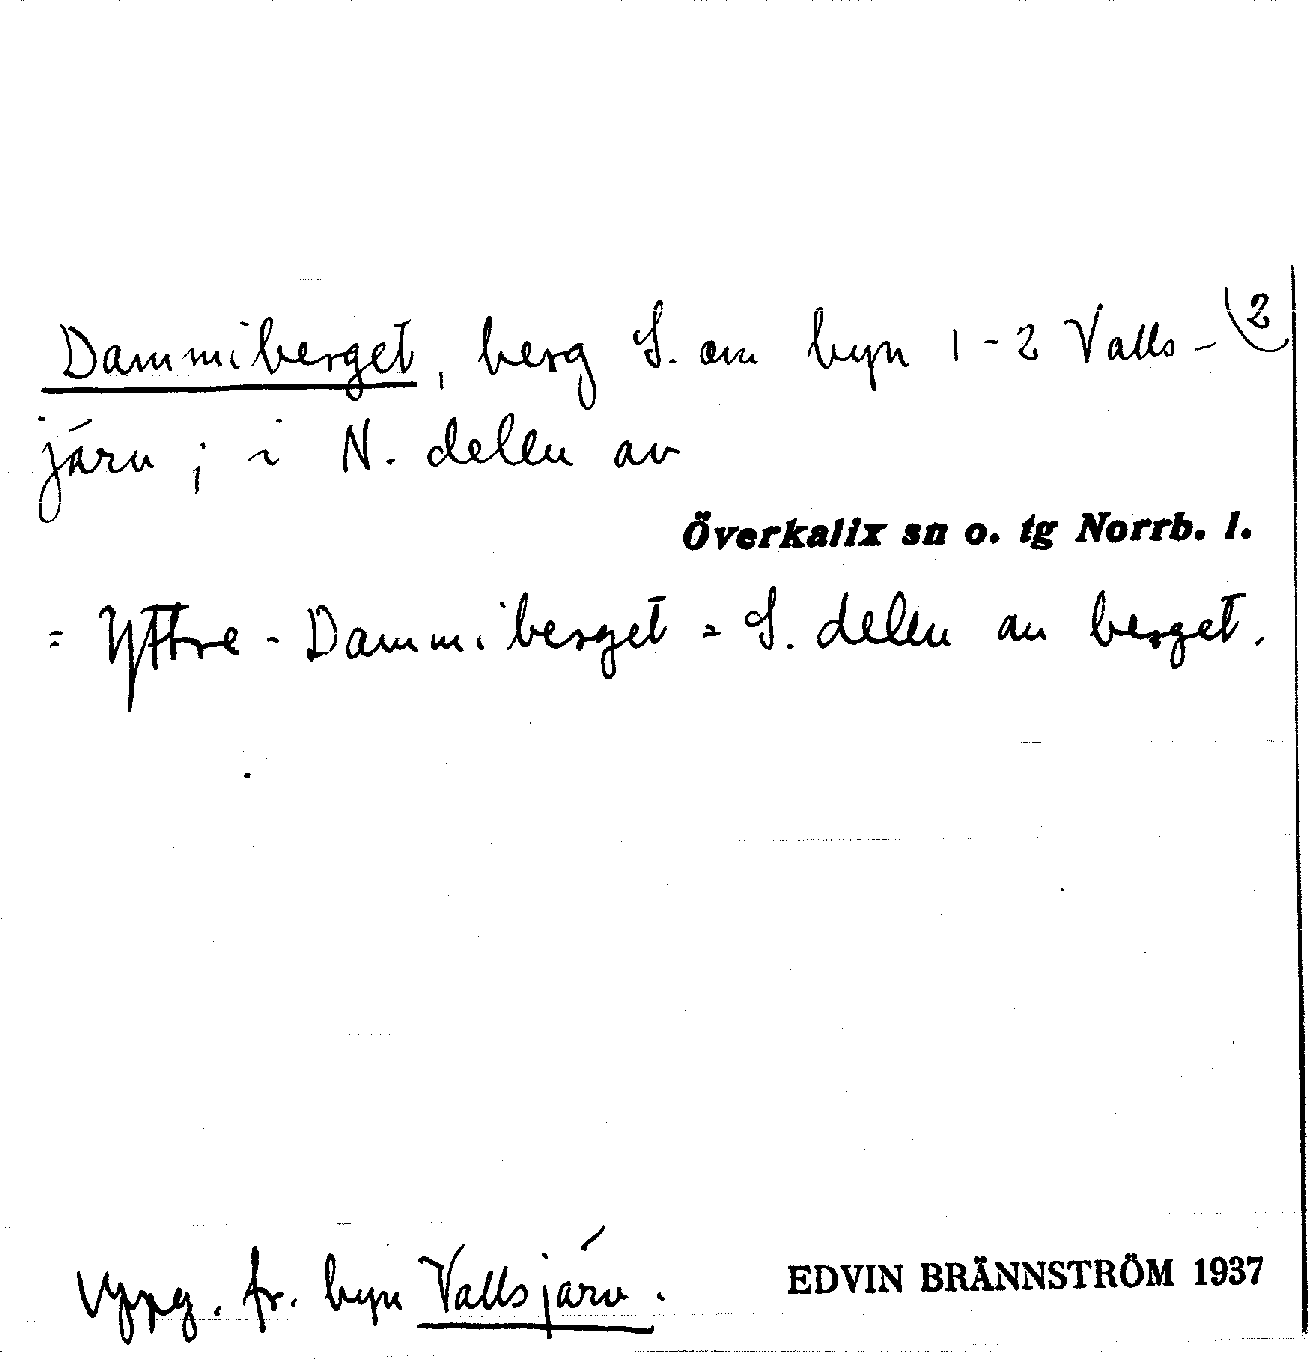 Dammiberget, berg S. om byn 1-2 Valls- 2
järv ; i N. delen av
Överkalix sn o. tg Norrb. l.
= Yttre - Dammiberget = S. delen av berget.
Uppg. fr. byn Vallsjärv.
EDVIN BRÄNNSTRÖM 1937